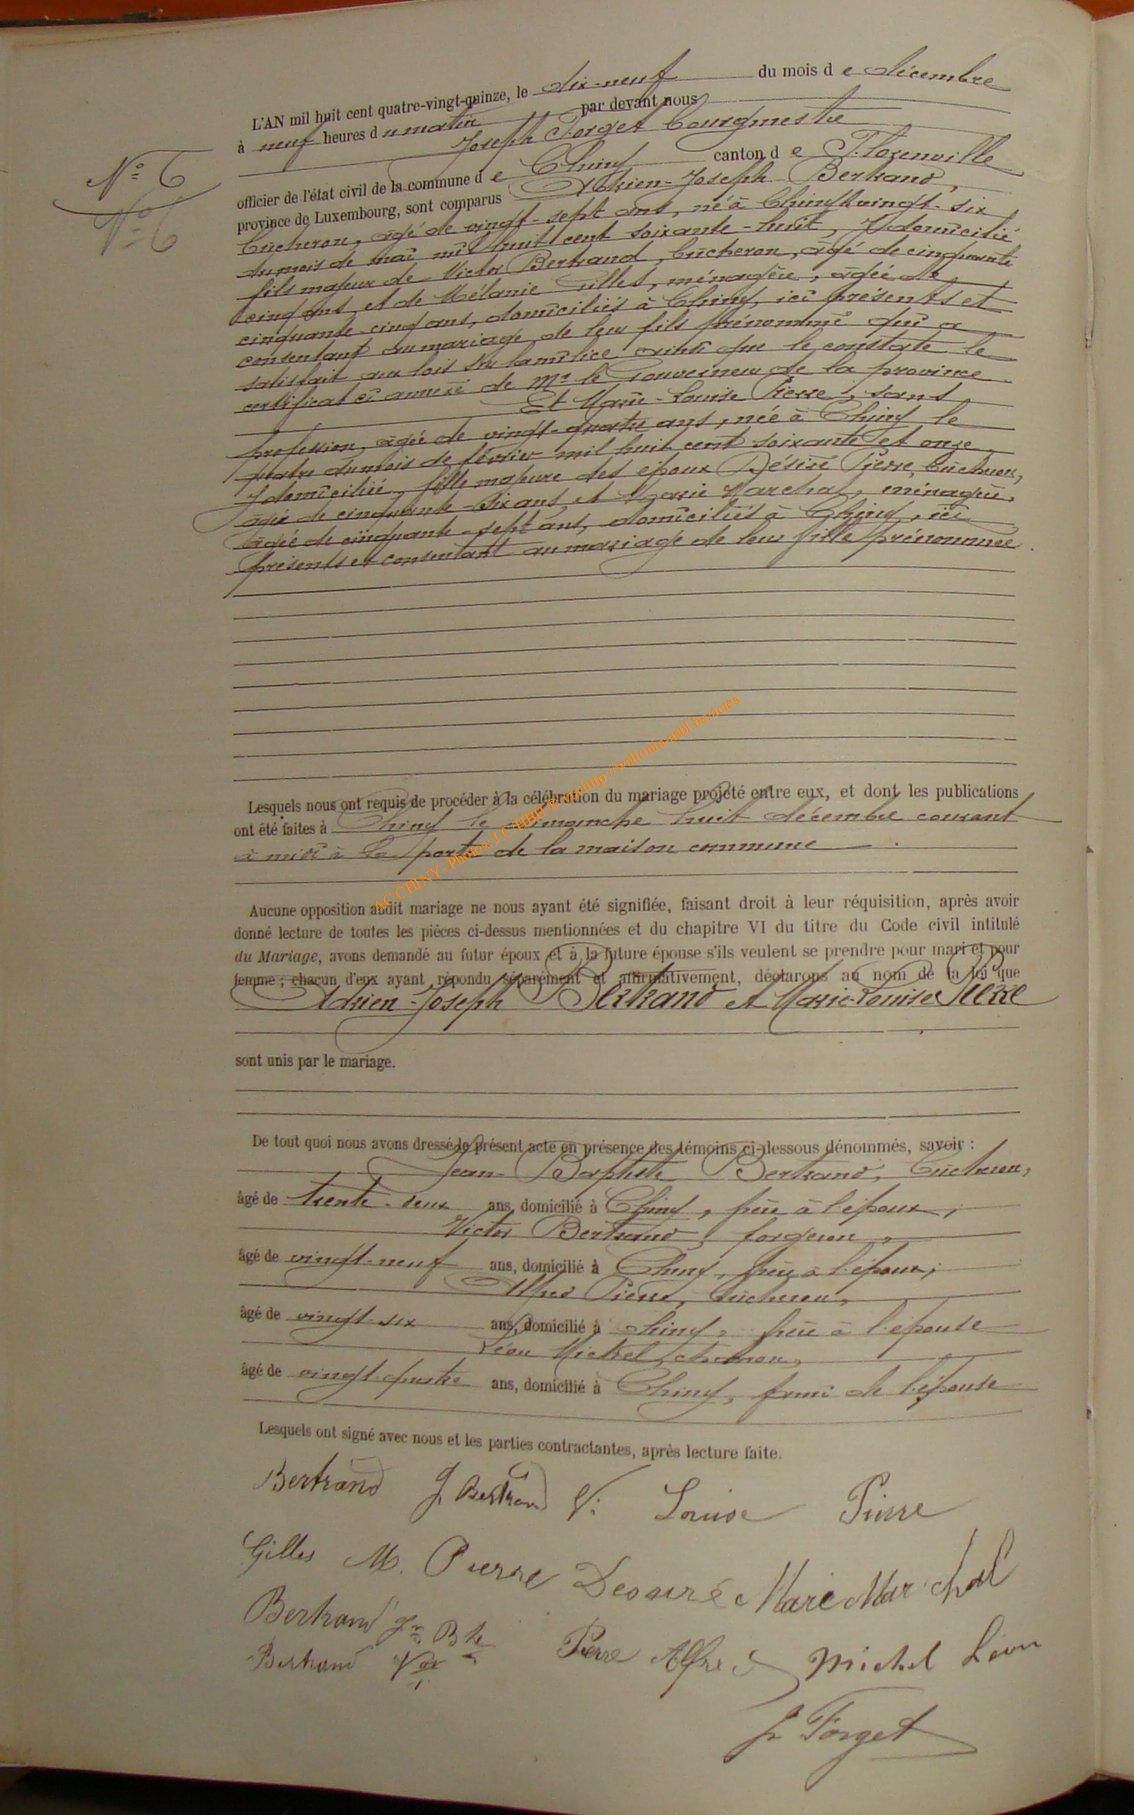 L'AN mil huit cent quatre-vingt-quinze, le dix-neuf du mois de décembre
à neuf heures du matin par devant nous
Joseph Forget bourgmestre
officier de l'état civil de la commune de Chiny canton de Florenville
province de Luxembourg, sont comparus Adrien-Joseph Bertrand,
bûcheron, âgé de vingt-sept ans, né à Chiny le vingt-six
du mois de mai mil huit cent soixante-huit, y domicilié
fils majeur de Victor Bertrand, bûcheron, âgé de cinquante
cinq ans et de Mélanie Gilles, ménagère, âgée de
cinquante-cinq ans, domiciliés à Chiny, ici présents et
consentant au mariage de leur fils prénommé qui a
satisfait aux lois sur la milice ainsi que le constate le
certificat ci annexé de Mr le Gouverneur de la province
Et Marie-Louise Pierre, sans
profession, âgée de vingt-quatre ans, née à Chiny le
quatre du mois de février mil huit cent soixante et onze
y domiciliée, fille majeure des époux Désiré Pierre, bûcheron,
âgé de cinquante-six ans et Marie Marchal, ménagère,
âgée de cinquante-sept ans, domiciliés à Chiny, ici
présents et consentant au mariage de leur fille prénommée
Nº 6
Nº 6
Lesquels nous ont requis de procéder à la célébration du mariage projeté entre eux, et dont les publications
ont été faites à Chiny le dimanche huit décembre courant
à midi à la porte de la maison commune
Aucune opposition audit mariage ne nous ayant été signifiée, faisant droit à leur réquisition, après avoir
donné lecture de toutes les pièces ci-dessus mentionnées et du chapitre VI du titre du Code civil intitulé
du Mariage, avons demandé au futur époux et à la future épouse s'ils veulent se prendre pour mari et pour
femme ; chacun d'eux ayant répondu séparément et affirmativement, déclarons au nom de la loi que
Adrien-Joseph Bertrand et Marie-Louise Pierre
sont unis par le mariage.
De tout quoi nous avons dressé le présent acte en présence des témoins ci-dessous dénommés, savoir :
Jean-Baptiste Bertrand, bûcheron,
âgé de trente-deux ans, domicilié à Chiny, frère à l'époux,
Victor Bertrand, forgeron,
âgé de vingt-neuf ans, domicilié à Chiny, frère à l'époux,
Alfred Pierre, bûcheron,
âgé de vingt-six ans, domicilié à Chiny, frère à l'épouse
Léon Michel,
âgé de vingt-quatre ans, domicilié à Chiny, ami de l'épouse
Lesquels ont signé avec nous et les parties contractantes, après lecture faite.
Bertrand J Bertrand V. Louise Pierre
Gilles M. Pierre Desiré Marie Marchal
Bertrand Jn Bte Pierre Alfred Michel Léon
Bertrand Vor
J. Forget